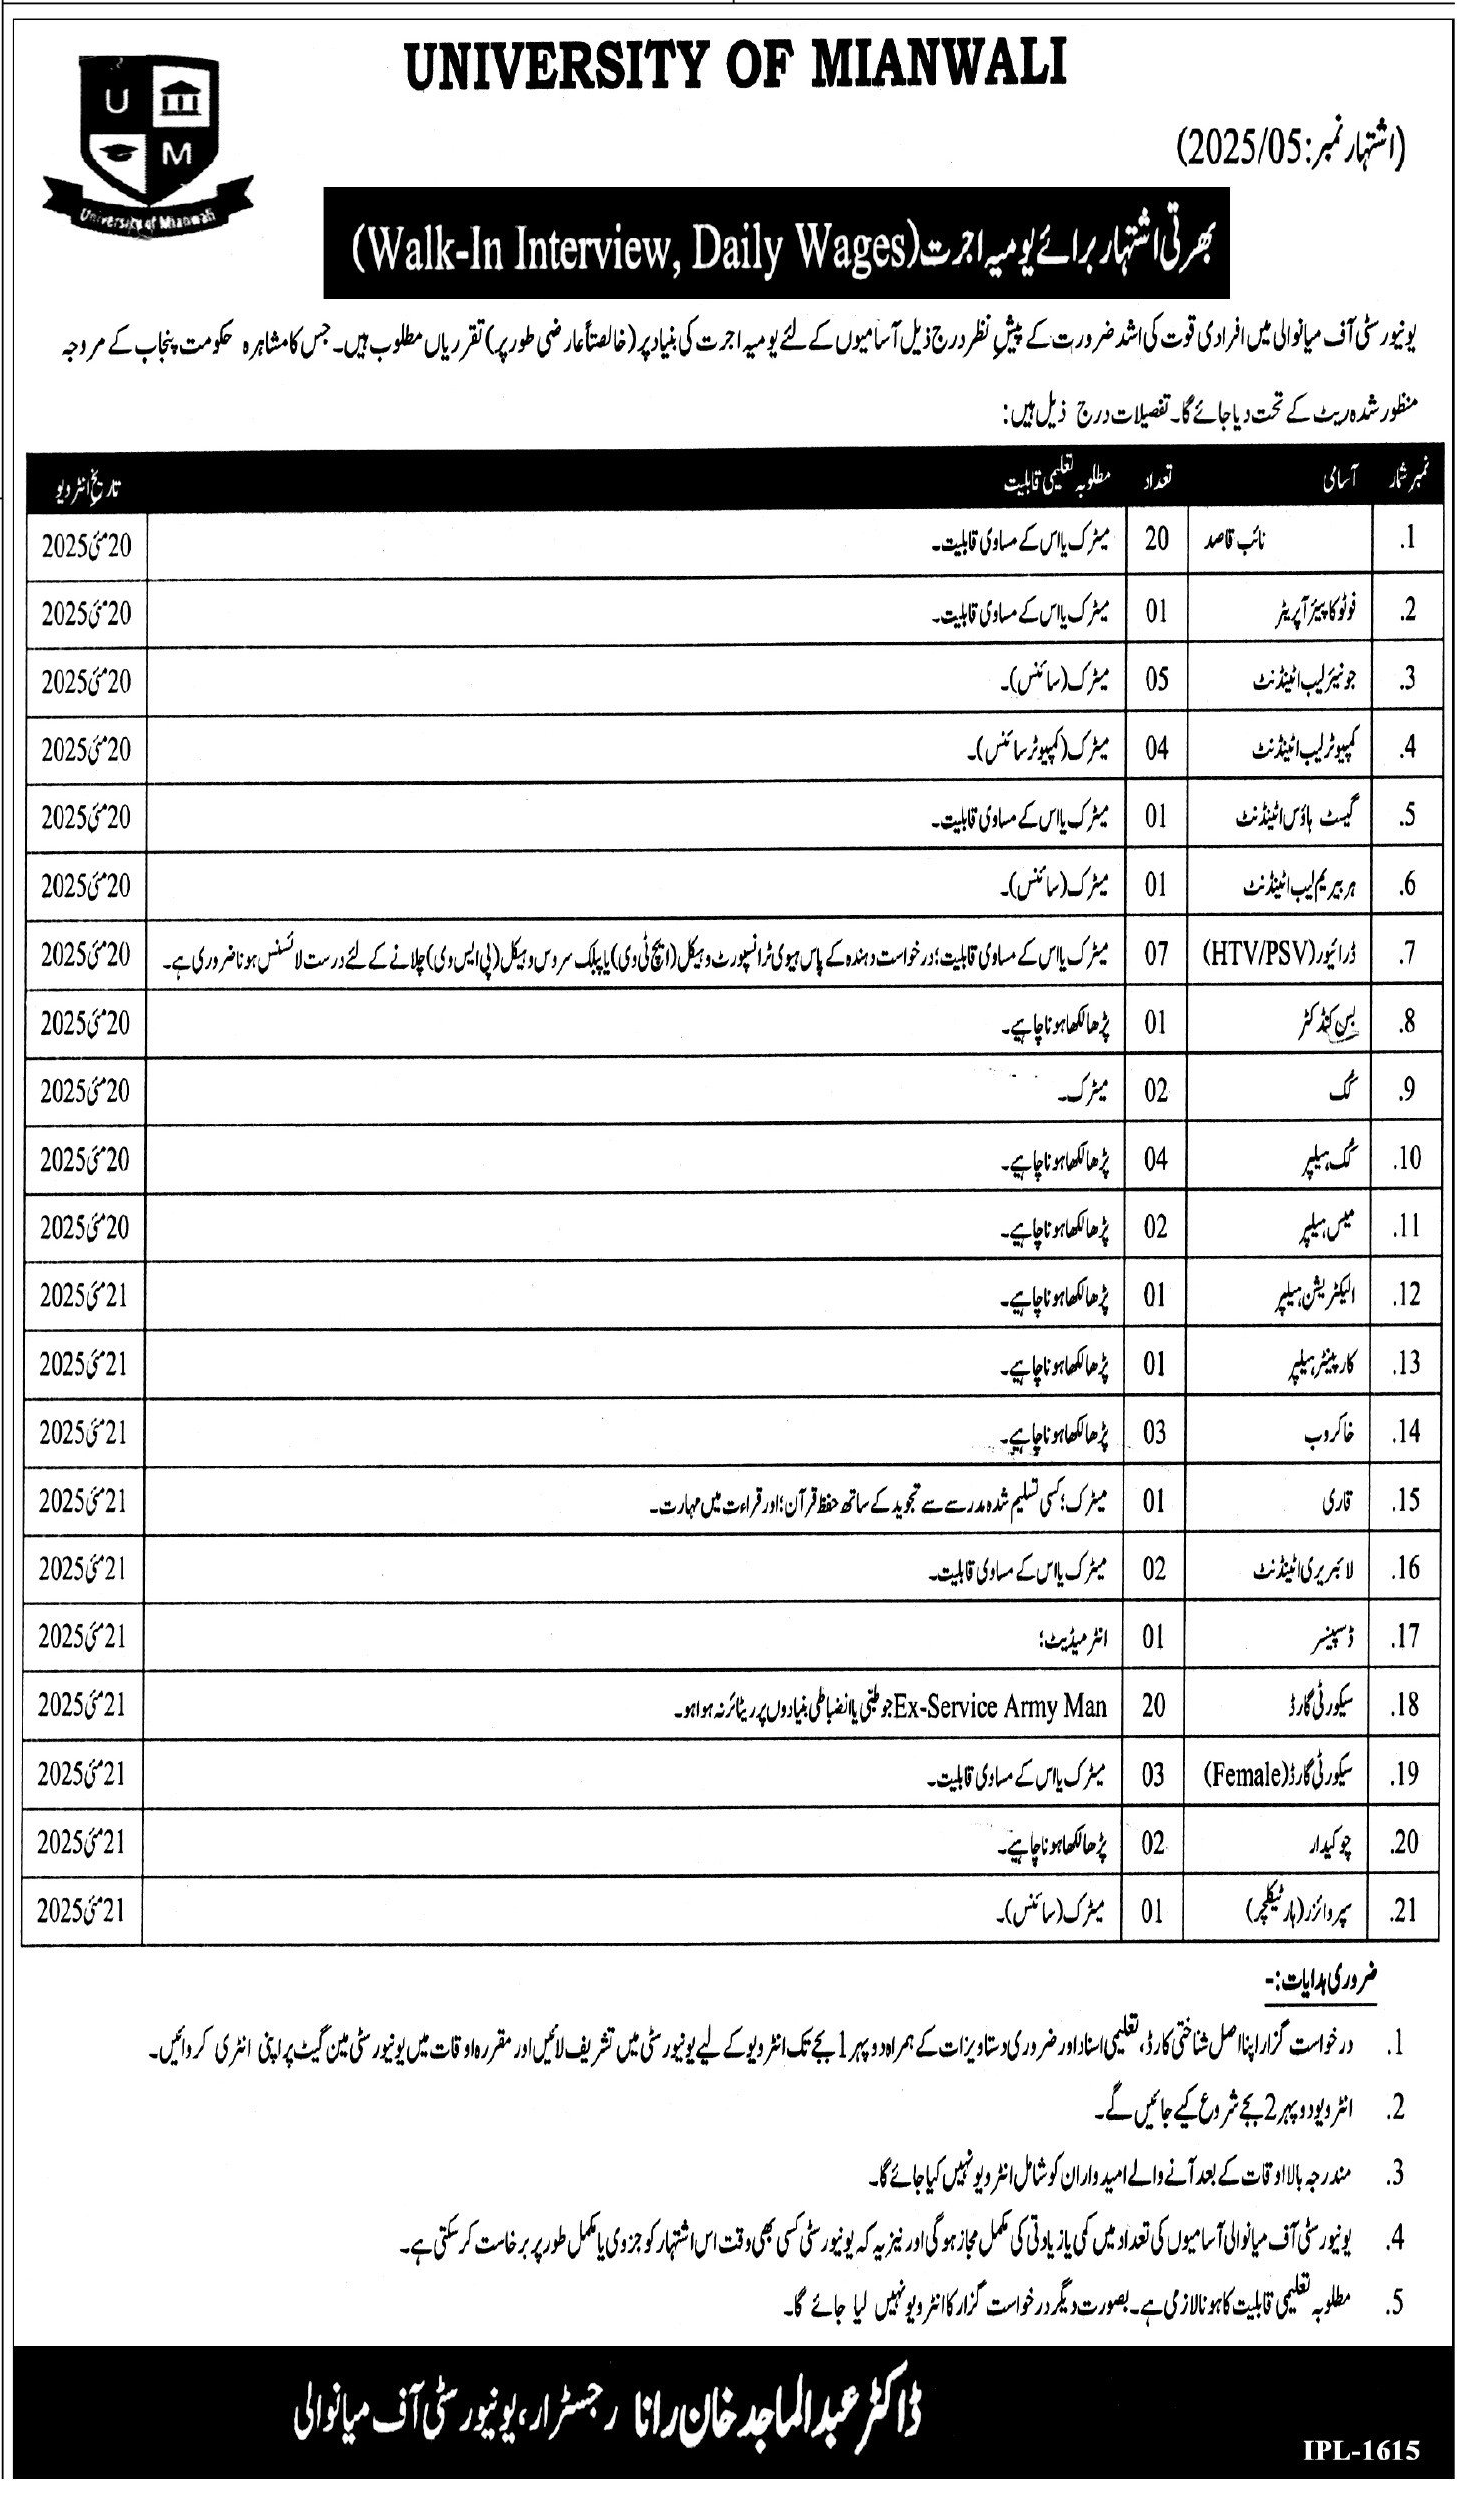 UNIVERSITY OF MIANWALI
U
M
University of Mianwali
(اشتہار نمبر: 2025/05)
بھرتی اشتہار برائے یومیہ اجرت (Walk-In Interview, Daily Wages)
یونیورسٹی آف میانوالی میں افرادی قوت کی اشد ضرورت کے پیشِ نظر درج ذیل آسامیوں کے لئے یومیہ اجرت کی بنیاد پر (خالصتاً عارضی طور پر) تقرریاں مطلوب ہیں۔ جس کا مشاہرہ حکومت پنجاب کے مروجہ
منظور شدہ ریٹ کے تحت دیا جائے گا۔ تفصیلات درج ذیل ہیں:
نمبر شمار آسامی تعداد مطلوبہ تعلیمی قابلیت تاریخ انٹرویو
1. نائب قاصد 20 میٹرک یا اس کے مساوی قابلیت۔ 20 مئی 2025
2. فوٹو کاپیئر آپریٹر 01 میٹرک یا اس کے مساوی قابلیت۔ 20 مئی 2025
3. جونیئر لیب اٹینڈنٹ 05 میٹرک (سائنس)۔ 20 مئی 2025
4. کمپیوٹر لیب اٹینڈنٹ 04 میٹرک (کمپیوٹر سائنس)۔ 20 مئی 2025
5. گیسٹ ہاؤس اٹینڈنٹ 01 میٹرک یا اس کے مساوی قابلیت۔ 20 مئی 2025
6. ہربیریم لیب اٹینڈنٹ 01 میٹرک (سائنس)۔ 20 مئی 2025
7. ڈرائیور (HTV/PSV) 07 میٹرک یا اس کے مساوی قابلیت؛ درخواست دہندہ کے پاس ہیوی ٹرانسپورٹ وہیکل (ایچ ٹی وی) یا پبلک سروس وہیکل (پی ایس وی) چلانے کے لئے درست لائسنس ہونا ضروری ہے۔ 20 مئی 2025
8. بس کنڈکٹر 01 پڑھا لکھا ہونا چاہیے۔ 20 مئی 2025
9. کُک 02 میٹرک۔ 20 مئی 2025
10. کُک ہیلپر 04 پڑھا لکھا ہونا چاہیے۔ 20 مئی 2025
11. میس ہیلپر 02 پڑھا لکھا ہونا چاہیے۔ 20 مئی 2025
12. الیکٹریشن ہیلپر 01 پڑھا لکھا ہونا چاہیے۔ 21 مئی 2025
13. کارپینٹر ہیلپر 01 پڑھا لکھا ہونا چاہیے۔ 21 مئی 2025
14. خاکروب 03 پڑھا لکھا ہونا چاہیے۔ 21 مئی 2025
15. قاری 01 میٹرک؛ کسی تسلیم شدہ مدرسے سے تجوید کے ساتھ حفظ قرآن؛ اور قراءت میں مہارت۔ 21 مئی 2025
16. لائبریری اٹینڈنٹ 02 میٹرک یا اس کے مساوی قابلیت۔ 21 مئی 2025
17. ڈسپنسر 01 انٹرمیڈیٹ؛ 21 مئی 2025
18. سیکورٹی گارڈ 20 Ex-Service Army Man جو طبّی یا انضباطی بنیادوں پر ریٹائر نہ ہوا ہو۔ 21 مئی 2025
19. سیکورٹی گارڈ (Female) 03 میٹرک یا اس کے مساوی قابلیت۔ 21 مئی 2025
20. چوکیدار 02 پڑھا لکھا ہونا چاہیے۔ 21 مئی 2025
21. سپروائزر (ہارٹیکلچر) 01 میٹرک (سائنس)۔ 21 مئی 2025
ضروری ہدایات:-
1. درخواست گزار اپنا اصل شناختی کارڈ، تعلیمی اسناد اور ضروری دستاویزات کے ہمراہ دوپہر 1 بجے تک انٹرویو کے لیے یونیورسٹی میں تشریف لائیں اور مقررہ اوقات میں یونیورسٹی مین گیٹ پر اپنی انٹری کروائیں۔
2. انٹرویو دوپہر 2 بجے شروع کیے جائیں گے۔
3. مندرجہ بالا اوقات کے بعد آنے والے امیدواران کو شامل انٹرویو نہیں کیا جائے گا۔
4. یونیورسٹی آف میانوالی آسامیوں کی تعداد میں کمی یا زیادتی کی مکمل مجاز ہوگی اور نیز یہ کہ یونیورسٹی کسی بھی وقت اس اشتہار کو جزوی یا مکمل طور پر برخاست کر سکتی ہے۔
5. مطلوبہ تعلیمی قابلیت کا ہونا لازمی ہے۔ بصورت دیگر درخواست گزار کا انٹرویو نہیں لیا جائے گا۔
ڈاکٹر عبدالماجد خان رانا رجسٹرار، یونیورسٹی آف میانوالی
IPL-1615